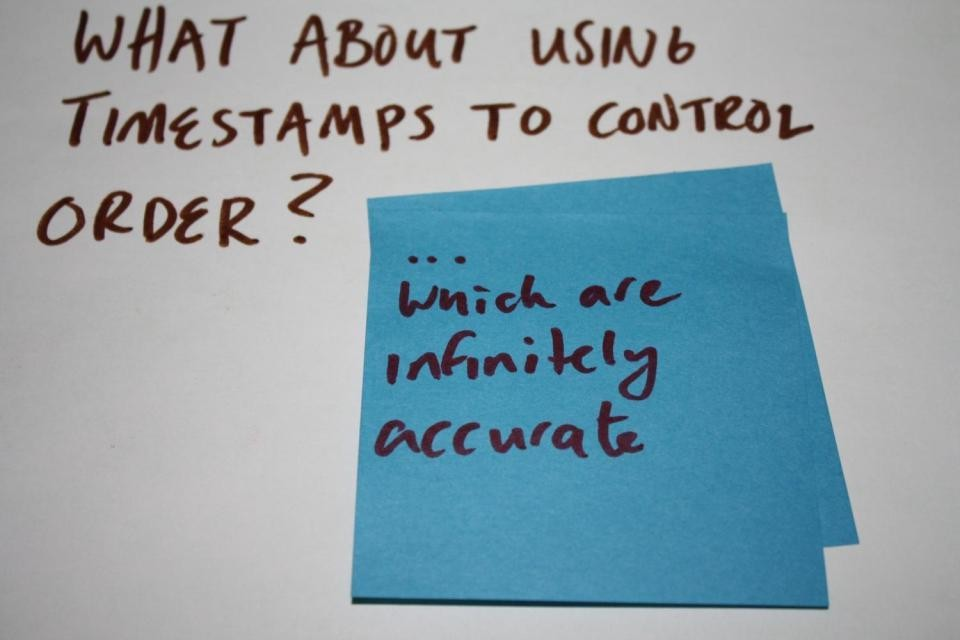 WHAT ABOUT USING
TIMESTAMPS TO CONTROL
ORDER?
...
which are
infinitely
accurate